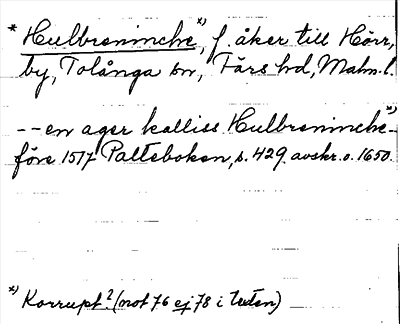 * Hulbreninche *), f. åker till Hörr,
by, Tolånga sn, Färs hd, Malm. l.
-- en ager kalliss Hulbreninche *) -
före 1517 Palteboken, s. 429. avskr. o. 1650.
*) Korrupt? (not 76 ej 78 i texten)